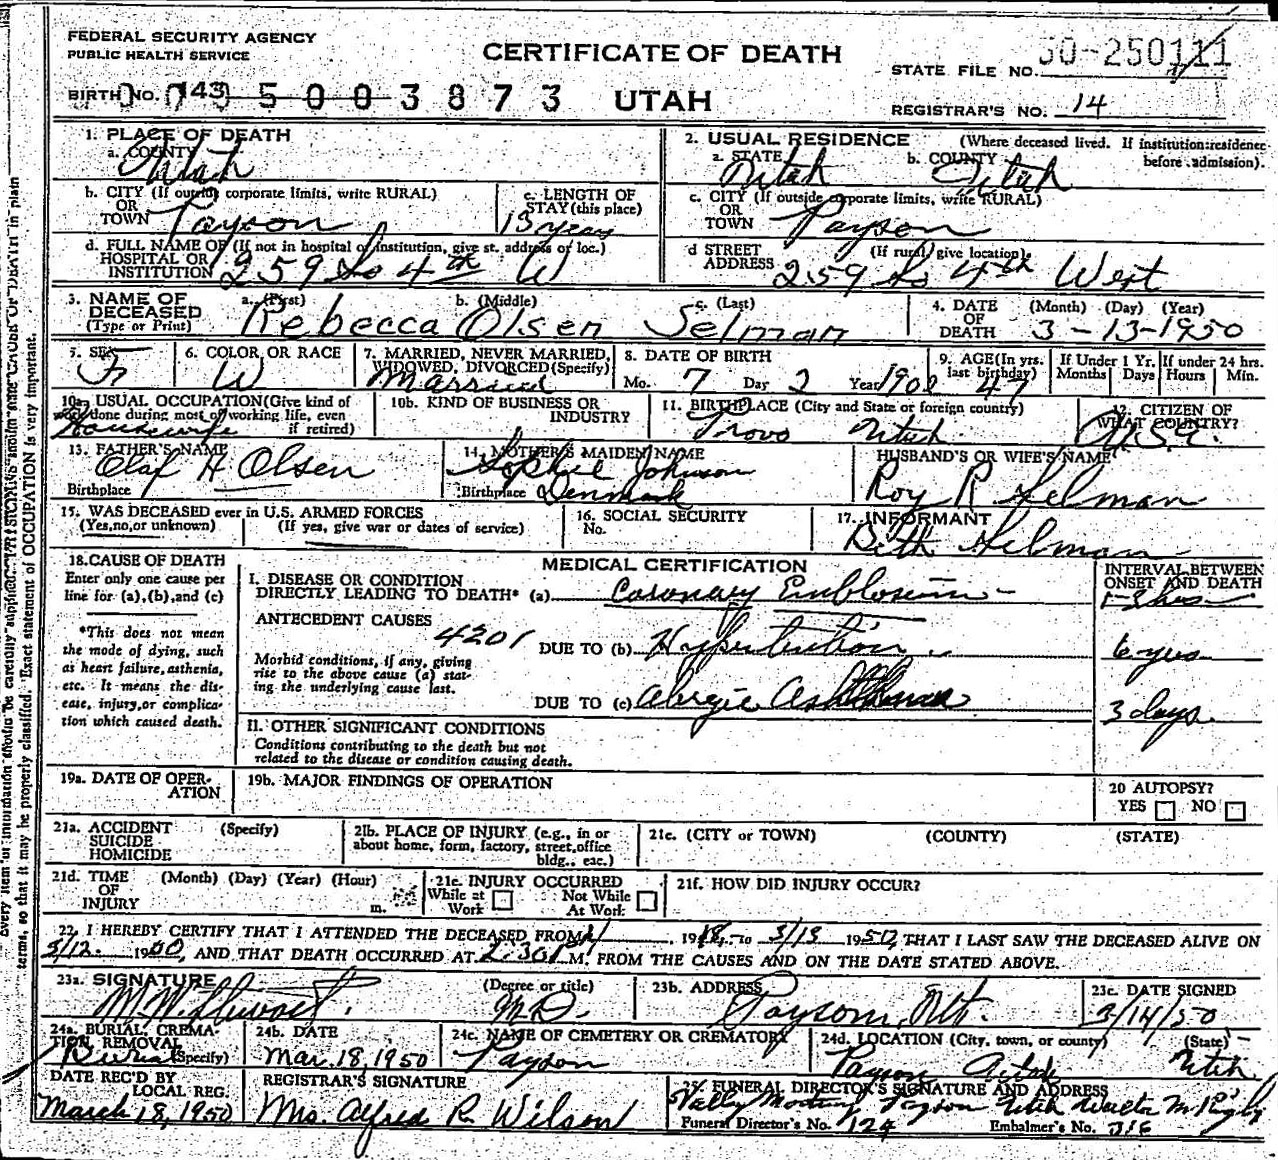 FEDERAL SECURITY AGENCY
PUBLIC HEALTH SERVICE
CERTIFICATE OF DEATH
UTAH
STATE FILE NO. 50-250111
BIRTH NO. 143 5003873
REGISTRAR'S NO. 14
1. PLACE OF DEATH
a. COUNTY Utah
b. CITY (If outside corporate limits, write RURAL) OR TOWN Payson
c. LENGTH OF STAY (this place) 13 years
d. FULL NAME OF (If not in hospital or institution, give st. address or loc.) HOSPITAL OR INSTITUTION 259 So 4th W
2. USUAL RESIDENCE (Where deceased lived. If institution:residence before admission).
a. STATE Utah b. COUNTY Utah
c. CITY (If outside corporate limits, write RURAL) OR TOWN Payson
d STREET ADDRESS (If rural give location) 259 So 4th West
3. NAME OF DECEASED (Type or Print) a. (First) Rebecca b. (Middle) Olsen c. (Last) Selman
4. DATE OF DEATH (Month) (Day) (Year) 3-13-1950
5. SEX F
6. COLOR OR RACE W
7. MARRIED, NEVER MARRIED, WIDOWED, DIVORCED (Specify) Married
8. DATE OF BIRTH Mo. 7 Day 2 Year 1902
9. AGE (In yrs. last birthday) 47
If Under 1 Yr. Months Days
If under 24 hrs. Hours Min.
10a. USUAL OCCUPATION (Give kind of done during most of working life, even if retired) Housewife
10b. KIND OF BUSINESS OR INDUSTRY
11. BIRTHPLACE (City and State or foreign country) Provo Utah
12. CITIZEN OF WHAT COUNTRY? U.S.A.
13. FATHER'S NAME Olaf H Olsen
Birthplace
14. MOTHER'S MAIDEN NAME Sophie Johnson
Birthplace Denmark
HUSBAND'S OR WIFE'S NAME Roy R Selman
15. WAS DECEASED ever in U.S. ARMED FORCES
(Yes,no,or unknown) (If yes, give war or dates of service)
16. SOCIAL SECURITY No.
17. INFORMANT Selman
18. CAUSE OF DEATH
Enter only one cause per line for (a),(b),and (c)
*This does not mean the mode of dying, such as heart failure, asthenia, etc. It means the disease, injury, or complication which caused death.
MEDICAL CERTIFICATION
INTERVAL BETWEEN ONSET AND DEATH
I. DISEASE OR CONDITION DIRECTLY LEADING TO DEATH* (a) Coronary
ANTECEDENT CAUSES 4201
DUE TO (b) Hypertention 6 yrs
Morbid conditions, if any, giving rise to the above cause (a) stating the underlying cause last.
DUE TO (c) 3 days.
II. OTHER SIGNIFICANT CONDITIONS
Conditions contributing to the death but not related to the disease or condition causing death.
19a. DATE OF OPERATION
19b. MAJOR FINDINGS OF OPERATION
20 AUTOPSY?
YES NO
21a. ACCIDENT SUICIDE HOMICIDE (Specify)
21b. PLACE OF INJURY (e.g., in or about home, form, factory, street,office bldg., eac.)
21c. (CITY or TOWN) (COUNTY) (STATE)
21d. TIME OF INJURY (Month) (Day) (Year) (Hour) m.
21e. INJURY OCCURRED
While at Work Not While At Work
21f. HOW DID INJURY OCCUR?
22. I HEREBY CERTIFY THAT I ATTENDED THE DECEASED FROM , 1948, to 3/13 1950, THAT I LAST SAW THE DECEASED ALIVE ON
3/12. 1950, AND THAT DEATH OCCURRED AT 2:30P M. FROM THE CAUSES AND ON THE DATE STATED ABOVE.
23a. SIGNATURE (Degree or title) M.D.
23b. ADDRESS Payson, Ut.
23c. DATE SIGNED 3/14/50
24a. BURIAL, CREMATION REMOVAL (Specify) Burial
24b. DATE Mar. 18, 1950
24c. NAME OF CEMETERY OR CREMATORY Payson
24d. LOCATION (City, town, or county) (State) Payson Utah Utah
DATE REC'D BY LOCAL REG. March 18, 1950
REGISTRAR'S SIGNATURE Mrs. Alfred R. Wilson
25. FUNERAL DIRECTOR'S SIGNATURE AND ADDRESS Valley Mortuary Payson Utah Walter M. Rigby
Funeral Director's No. 124 Embalmer's No. 316
terms, so that it may be properly classified. Exact statement of OCCUPATION is very important.